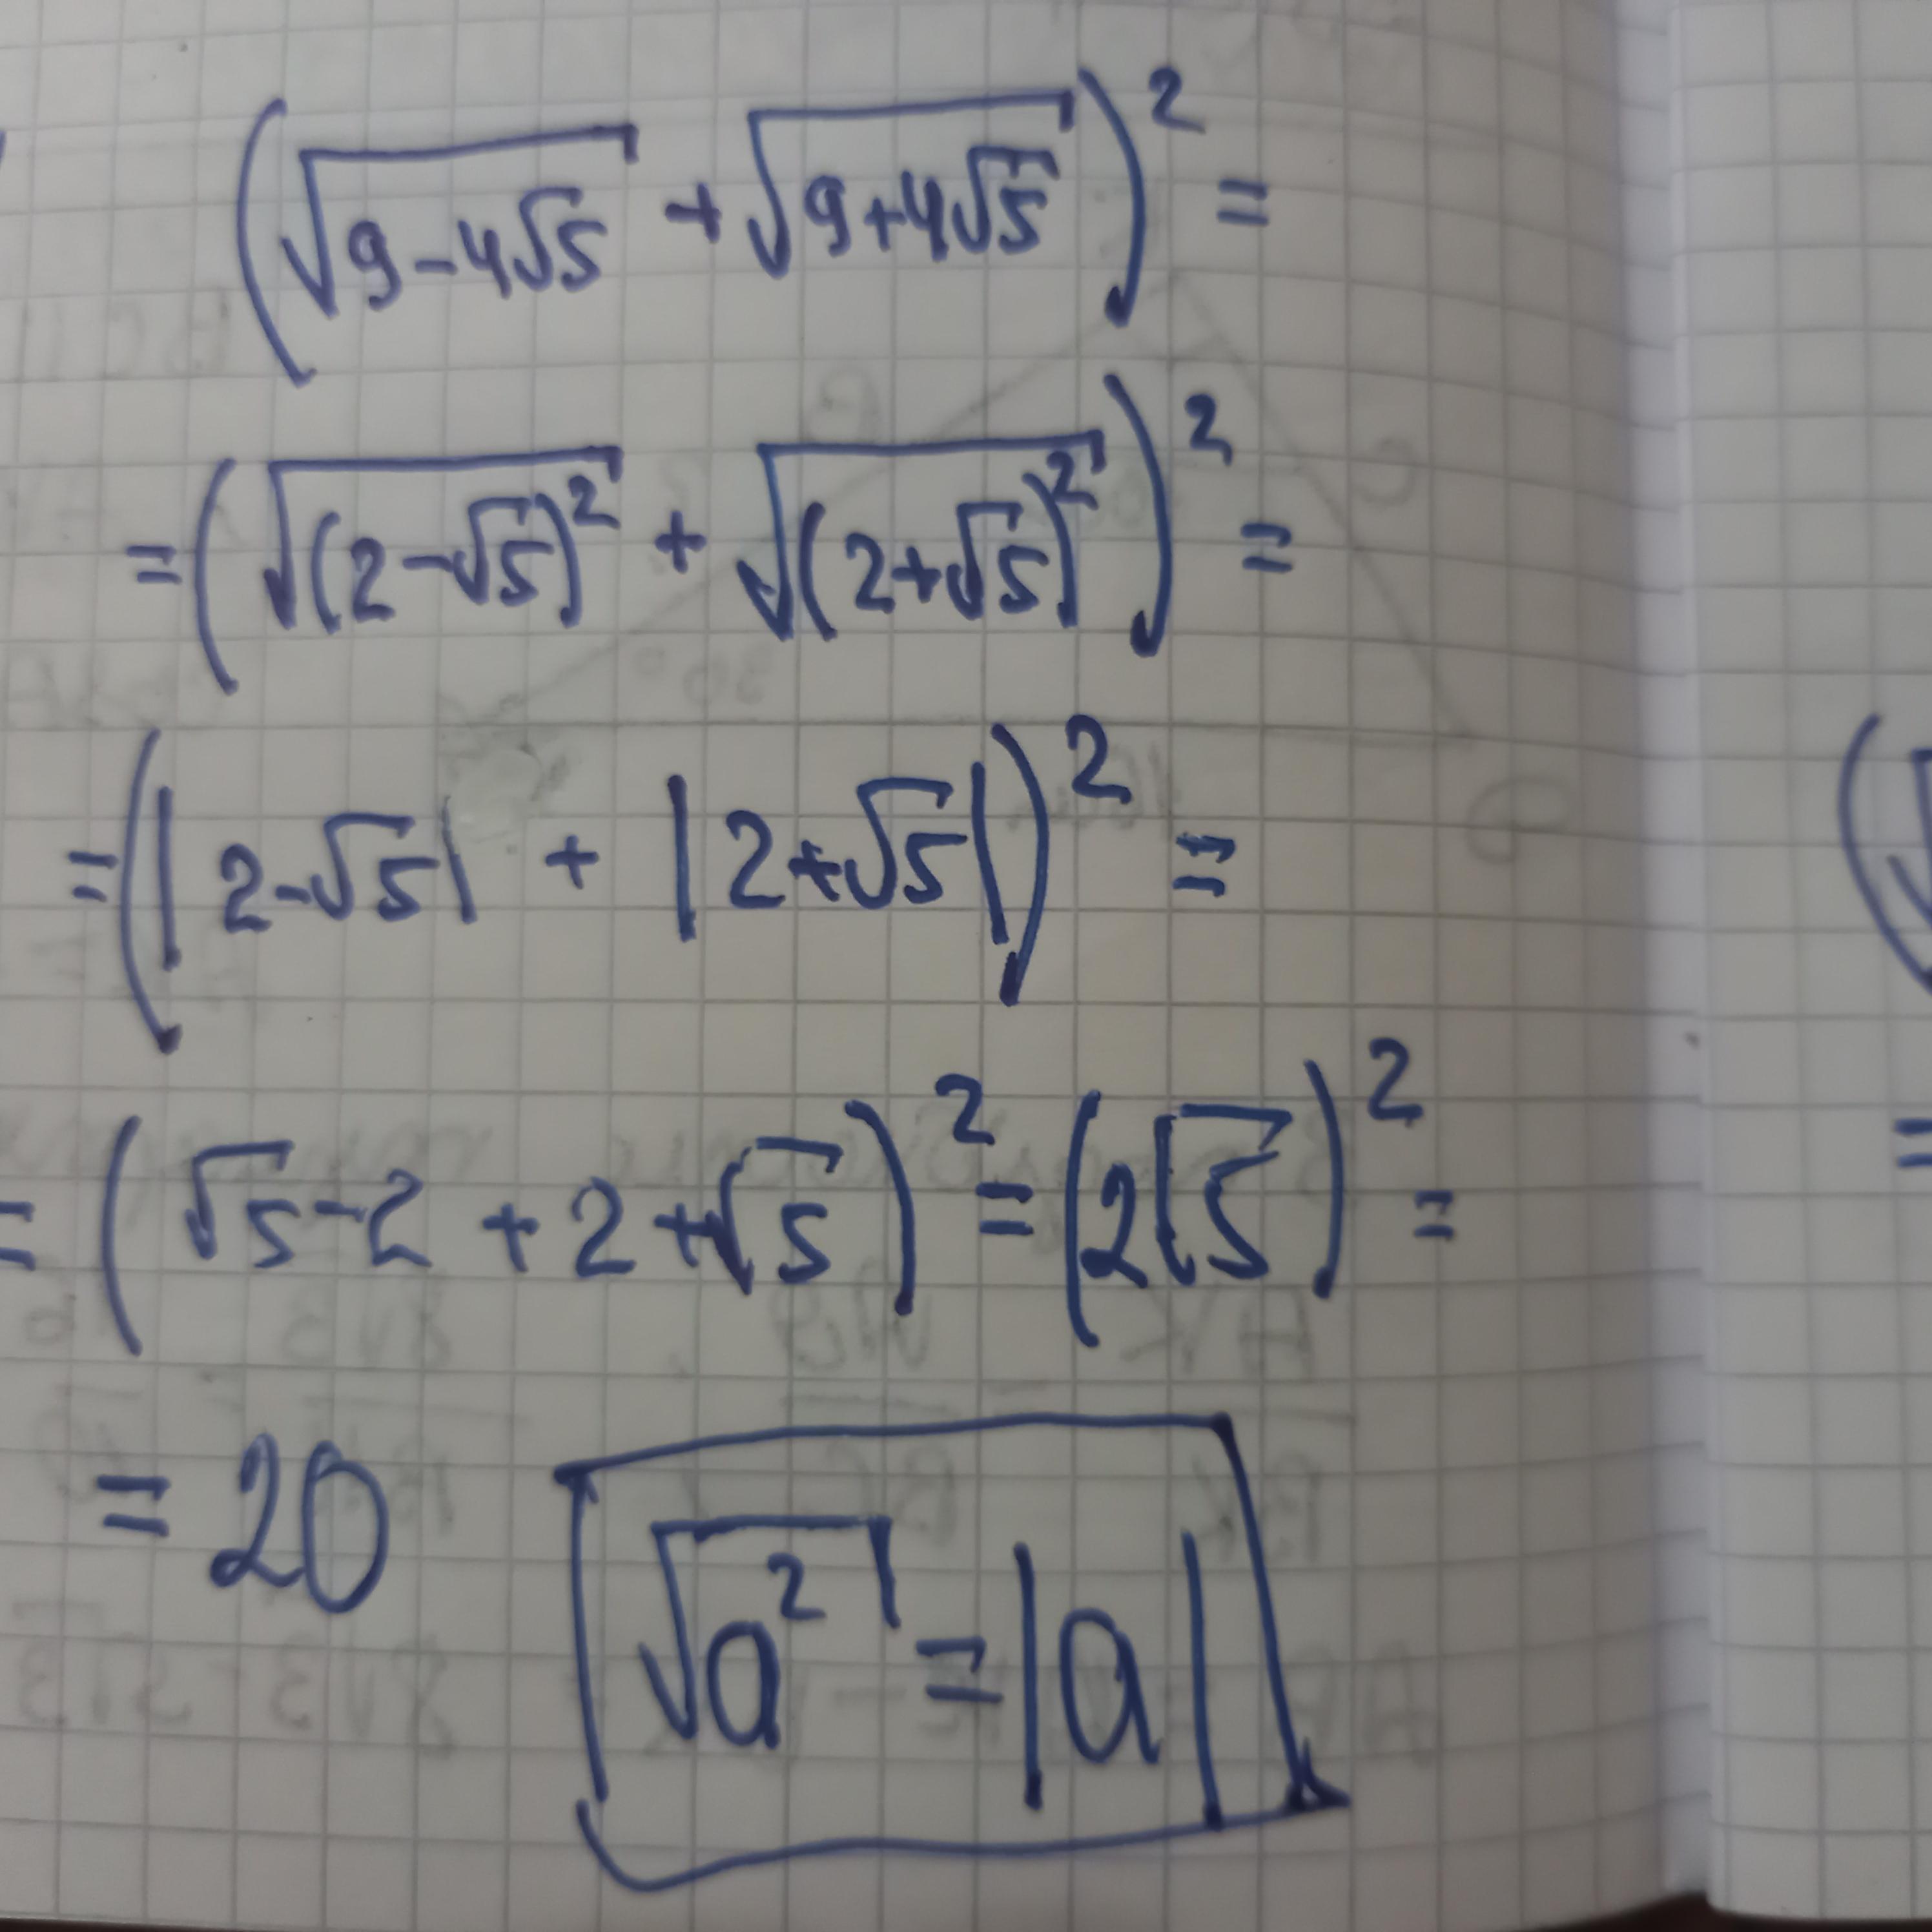 (√(9-4√5) + √(9+4√5))² =
= (√((2-√5)²) + √((2+√5)²))² =
= (|2-√5| + |2+√5|)² =
= (√5-2 + 2+√5)² = (2√5)² =
= 20
√(a²) = |a|